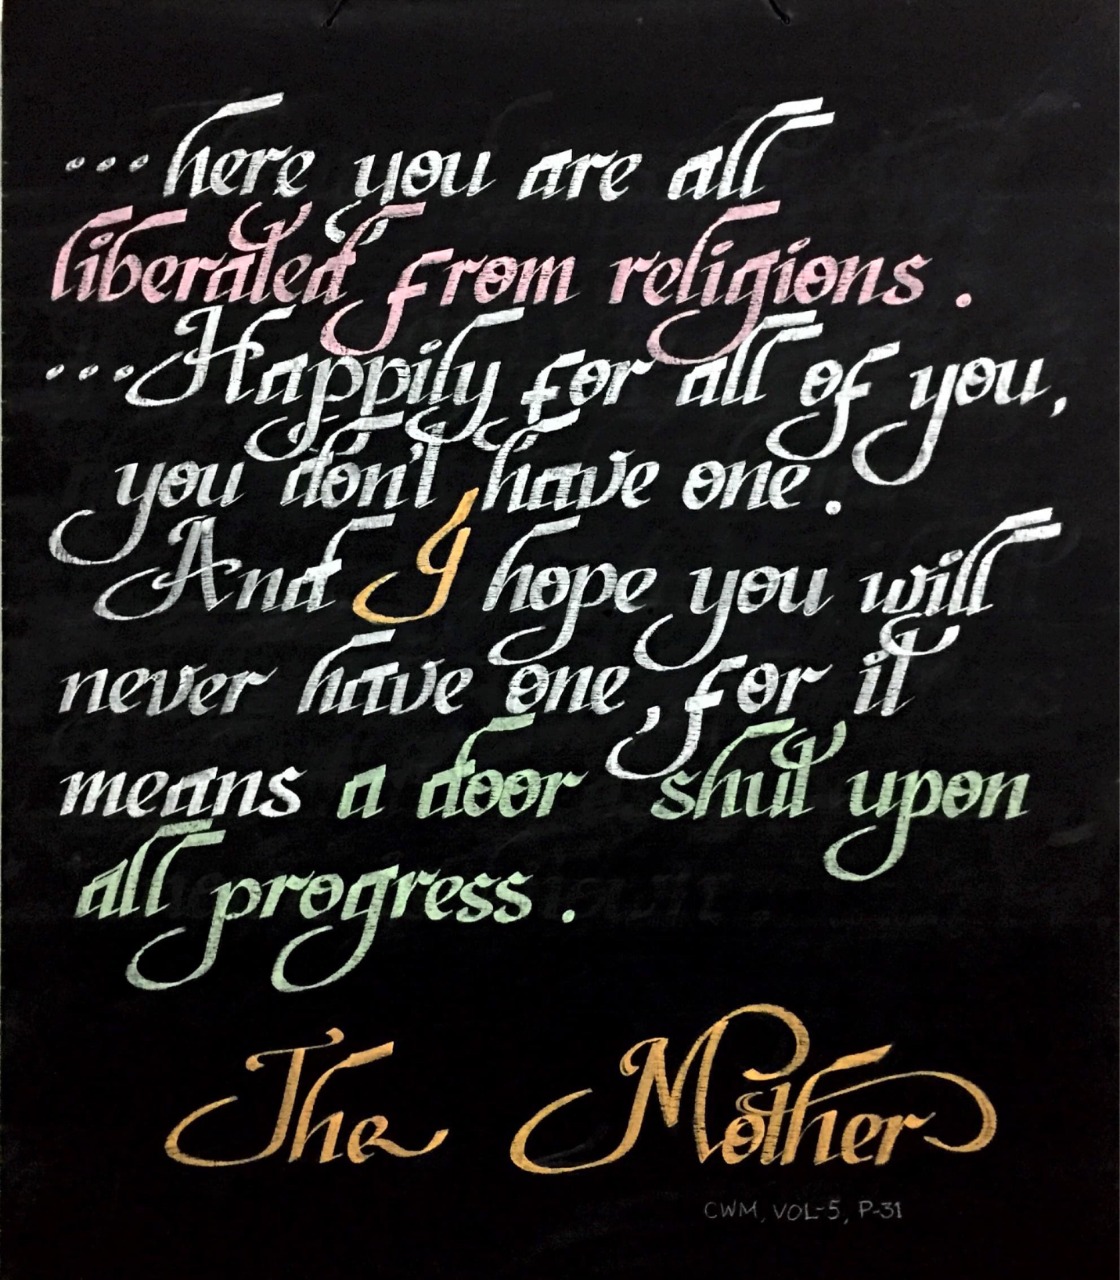 ...here you are all
liberated from religions.
...Happily for all of you,
you don't have one.
And I hope you will
never have one, for it
means a door shut upon
all progress.
The Mother
CWM, VOL-5, P-31